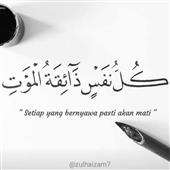 كُلُّ نَفْسٍ ذَآئِقَةُ الْمَوْتِ
" Setiap yang bernyawa pasti akan mati "
@zulhaizam7